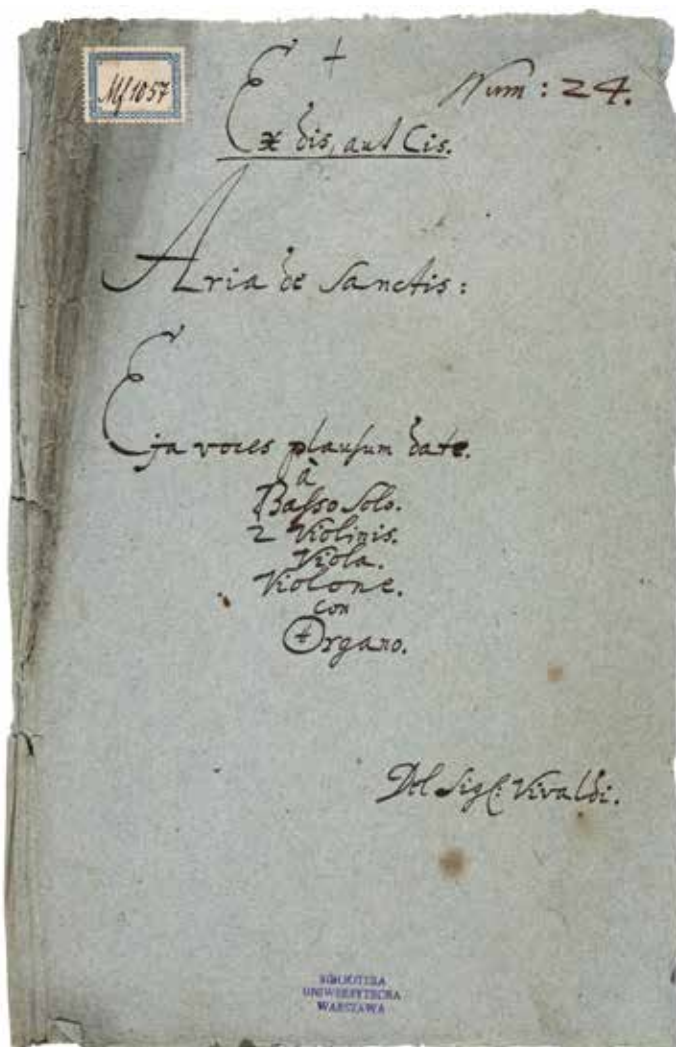 Mf 1057
+
Num: 24.
Ex dis, aut Cis.
Aria de Sanctis:
Eja voces plausum date.
à
Basso Solo.
2 Violinis.
Viola.
Violone.
con
Organo.
Del Sigl: Vivaldi.
BIBLIOTEKA
UNIWERSYTECKA
WARSZAWA